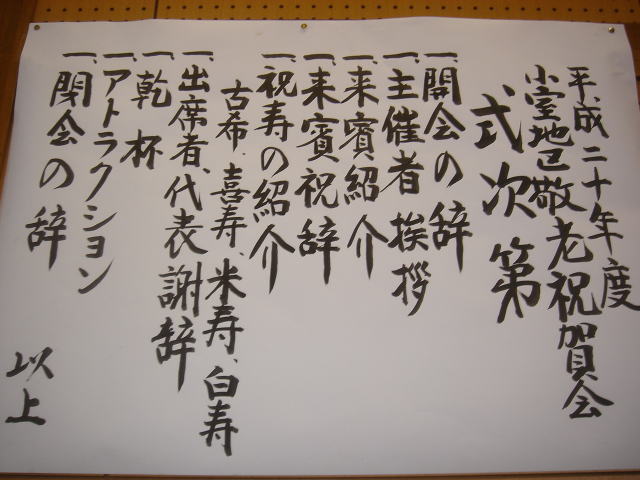 平成二十年度
小室地区敬老祝賀会
式次第
一、開会の辞
一、主催者挨拶
一、来賓紹介
一、来賓祝辞
一、祝寿の紹介
古希、喜寿、米寿、白寿
一、出席者、代表謝辞
一、乾杯
一、アトラクション
一、閉会の辞
以上